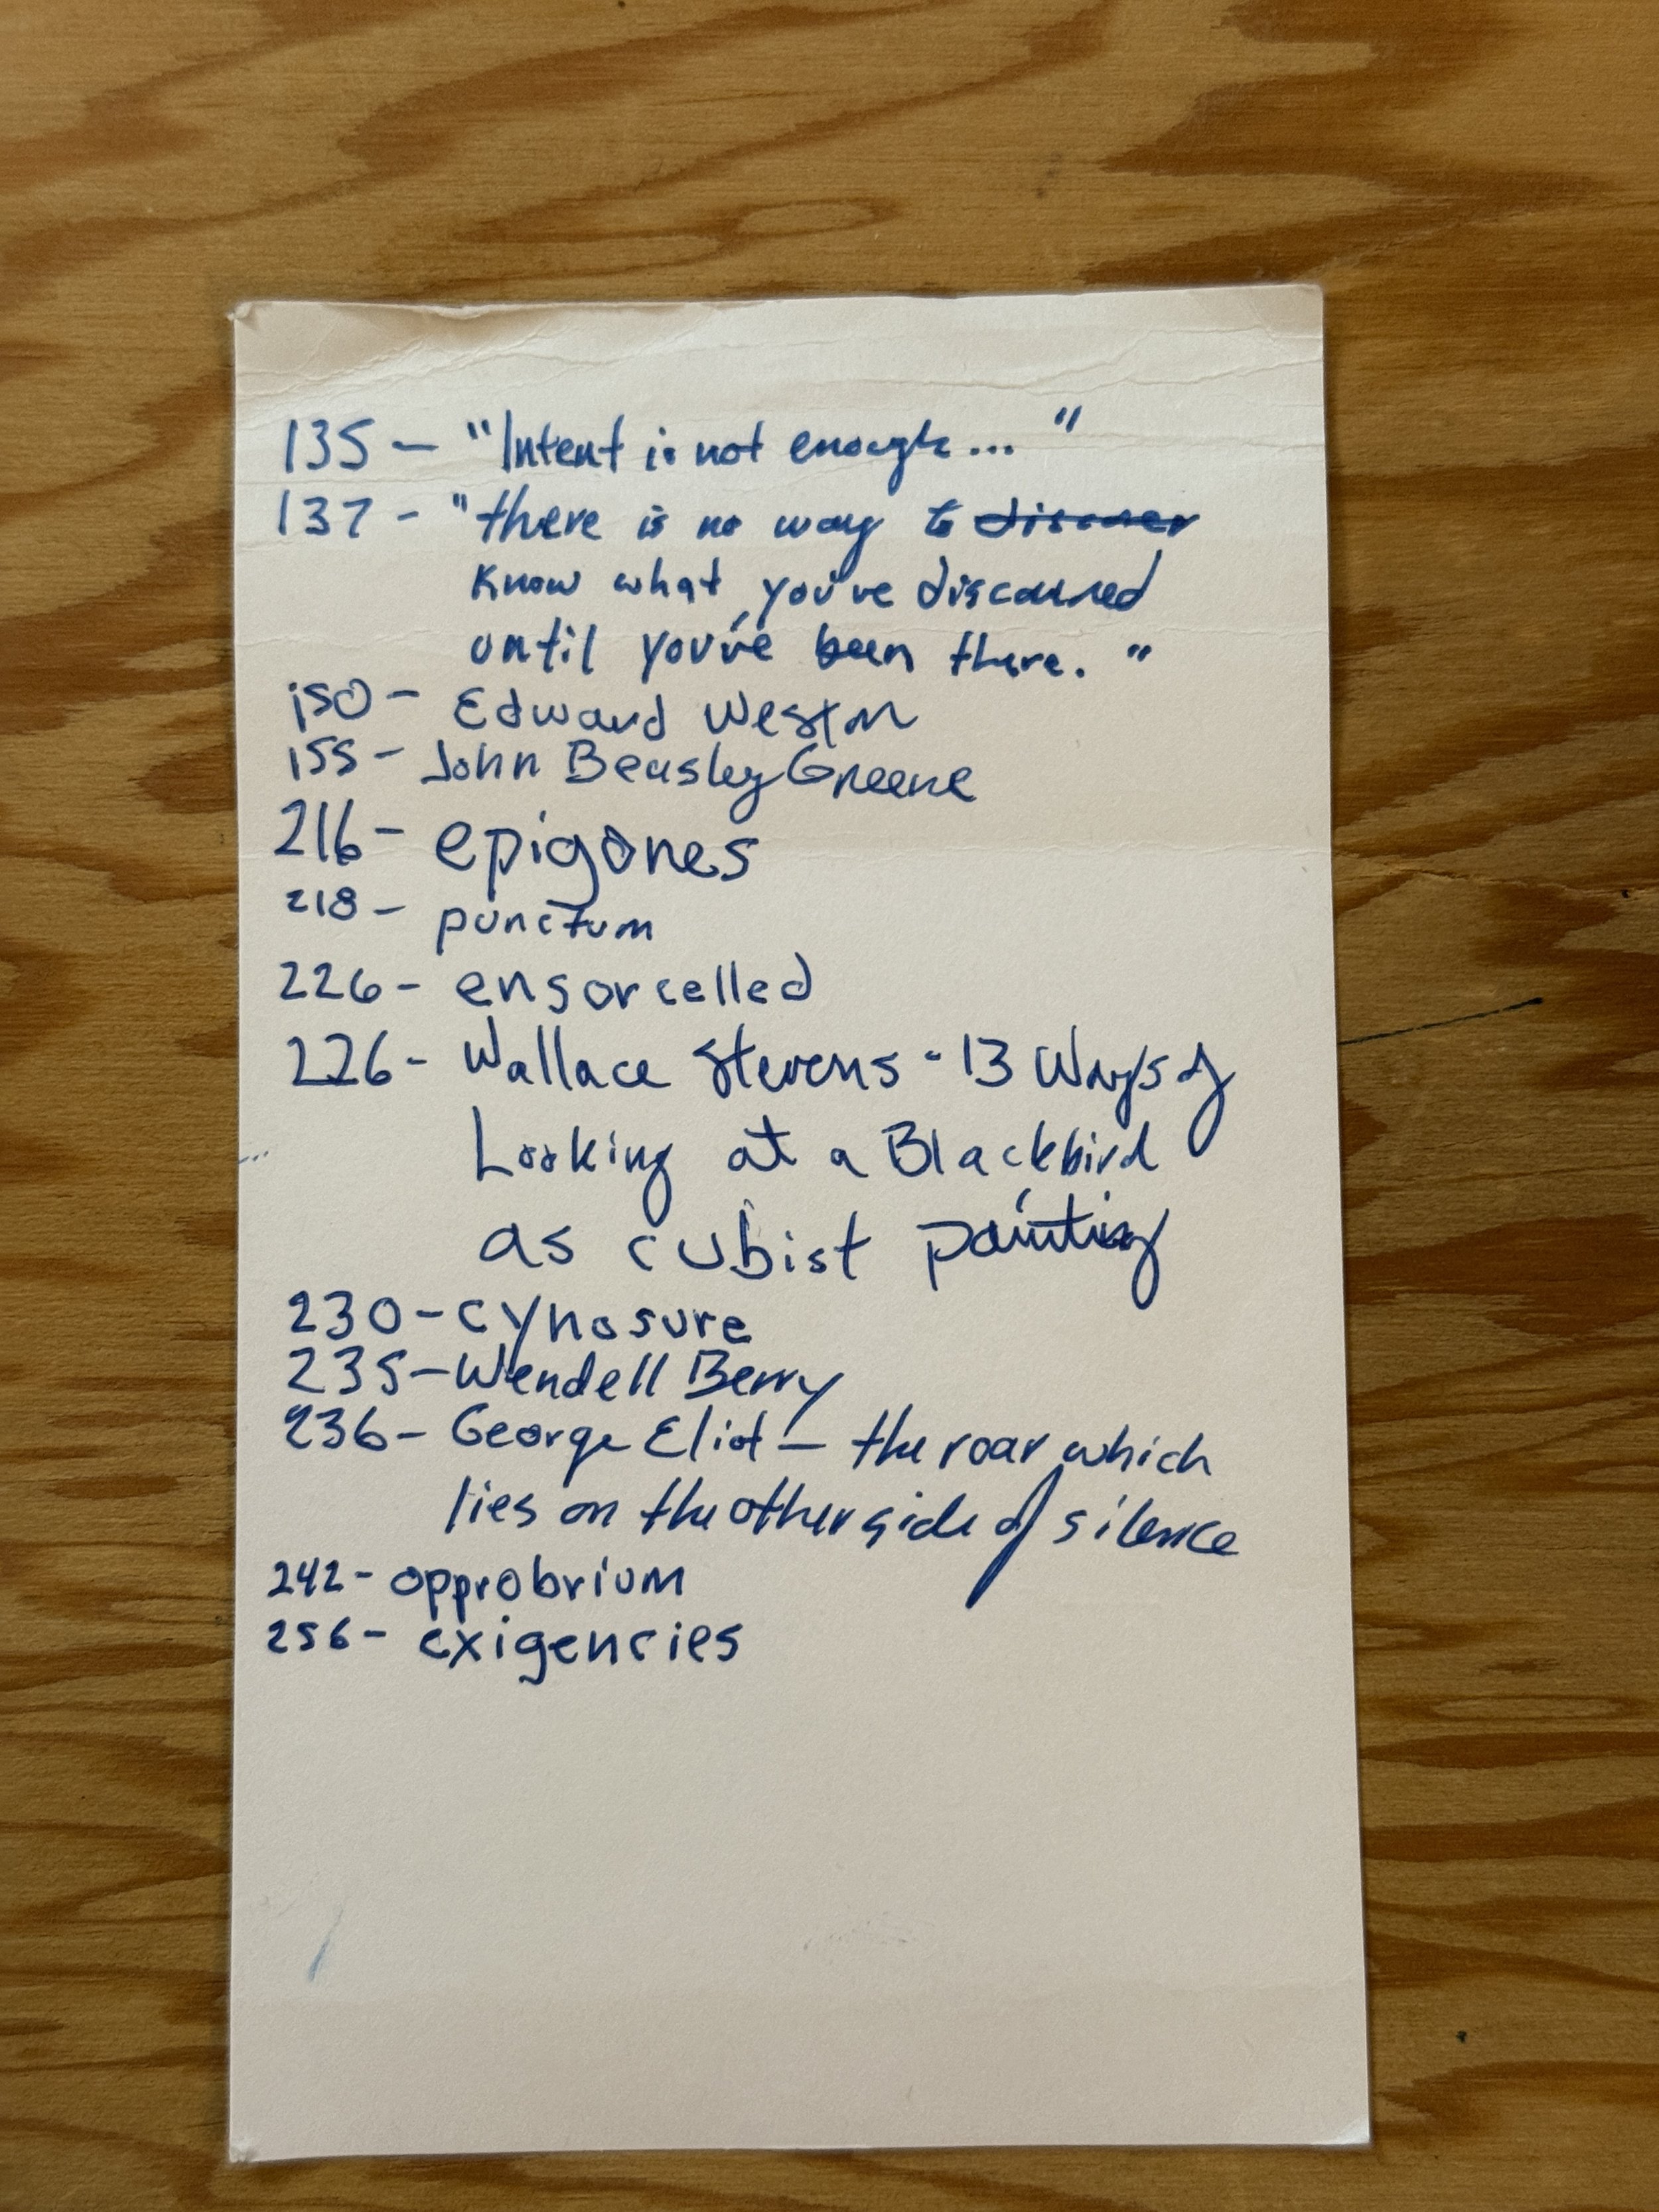 135 – "Intent is not enough... "
137 - "there is no way to discover
know what you've discovered
until you've been there. "
150 - Edward Weston
155 - John Beasley Greene
216 - epigones
218 - punctum
226 - ensorcelled
226 - Wallace Stevens - 13 Ways of
Looking at a Blackbird
as cubist painting
230 - cynosure
235 - Wendell Berry
236 - George Eliot – the roar which
lies on the other side of silence
242 - opprobrium
256 - exigencies